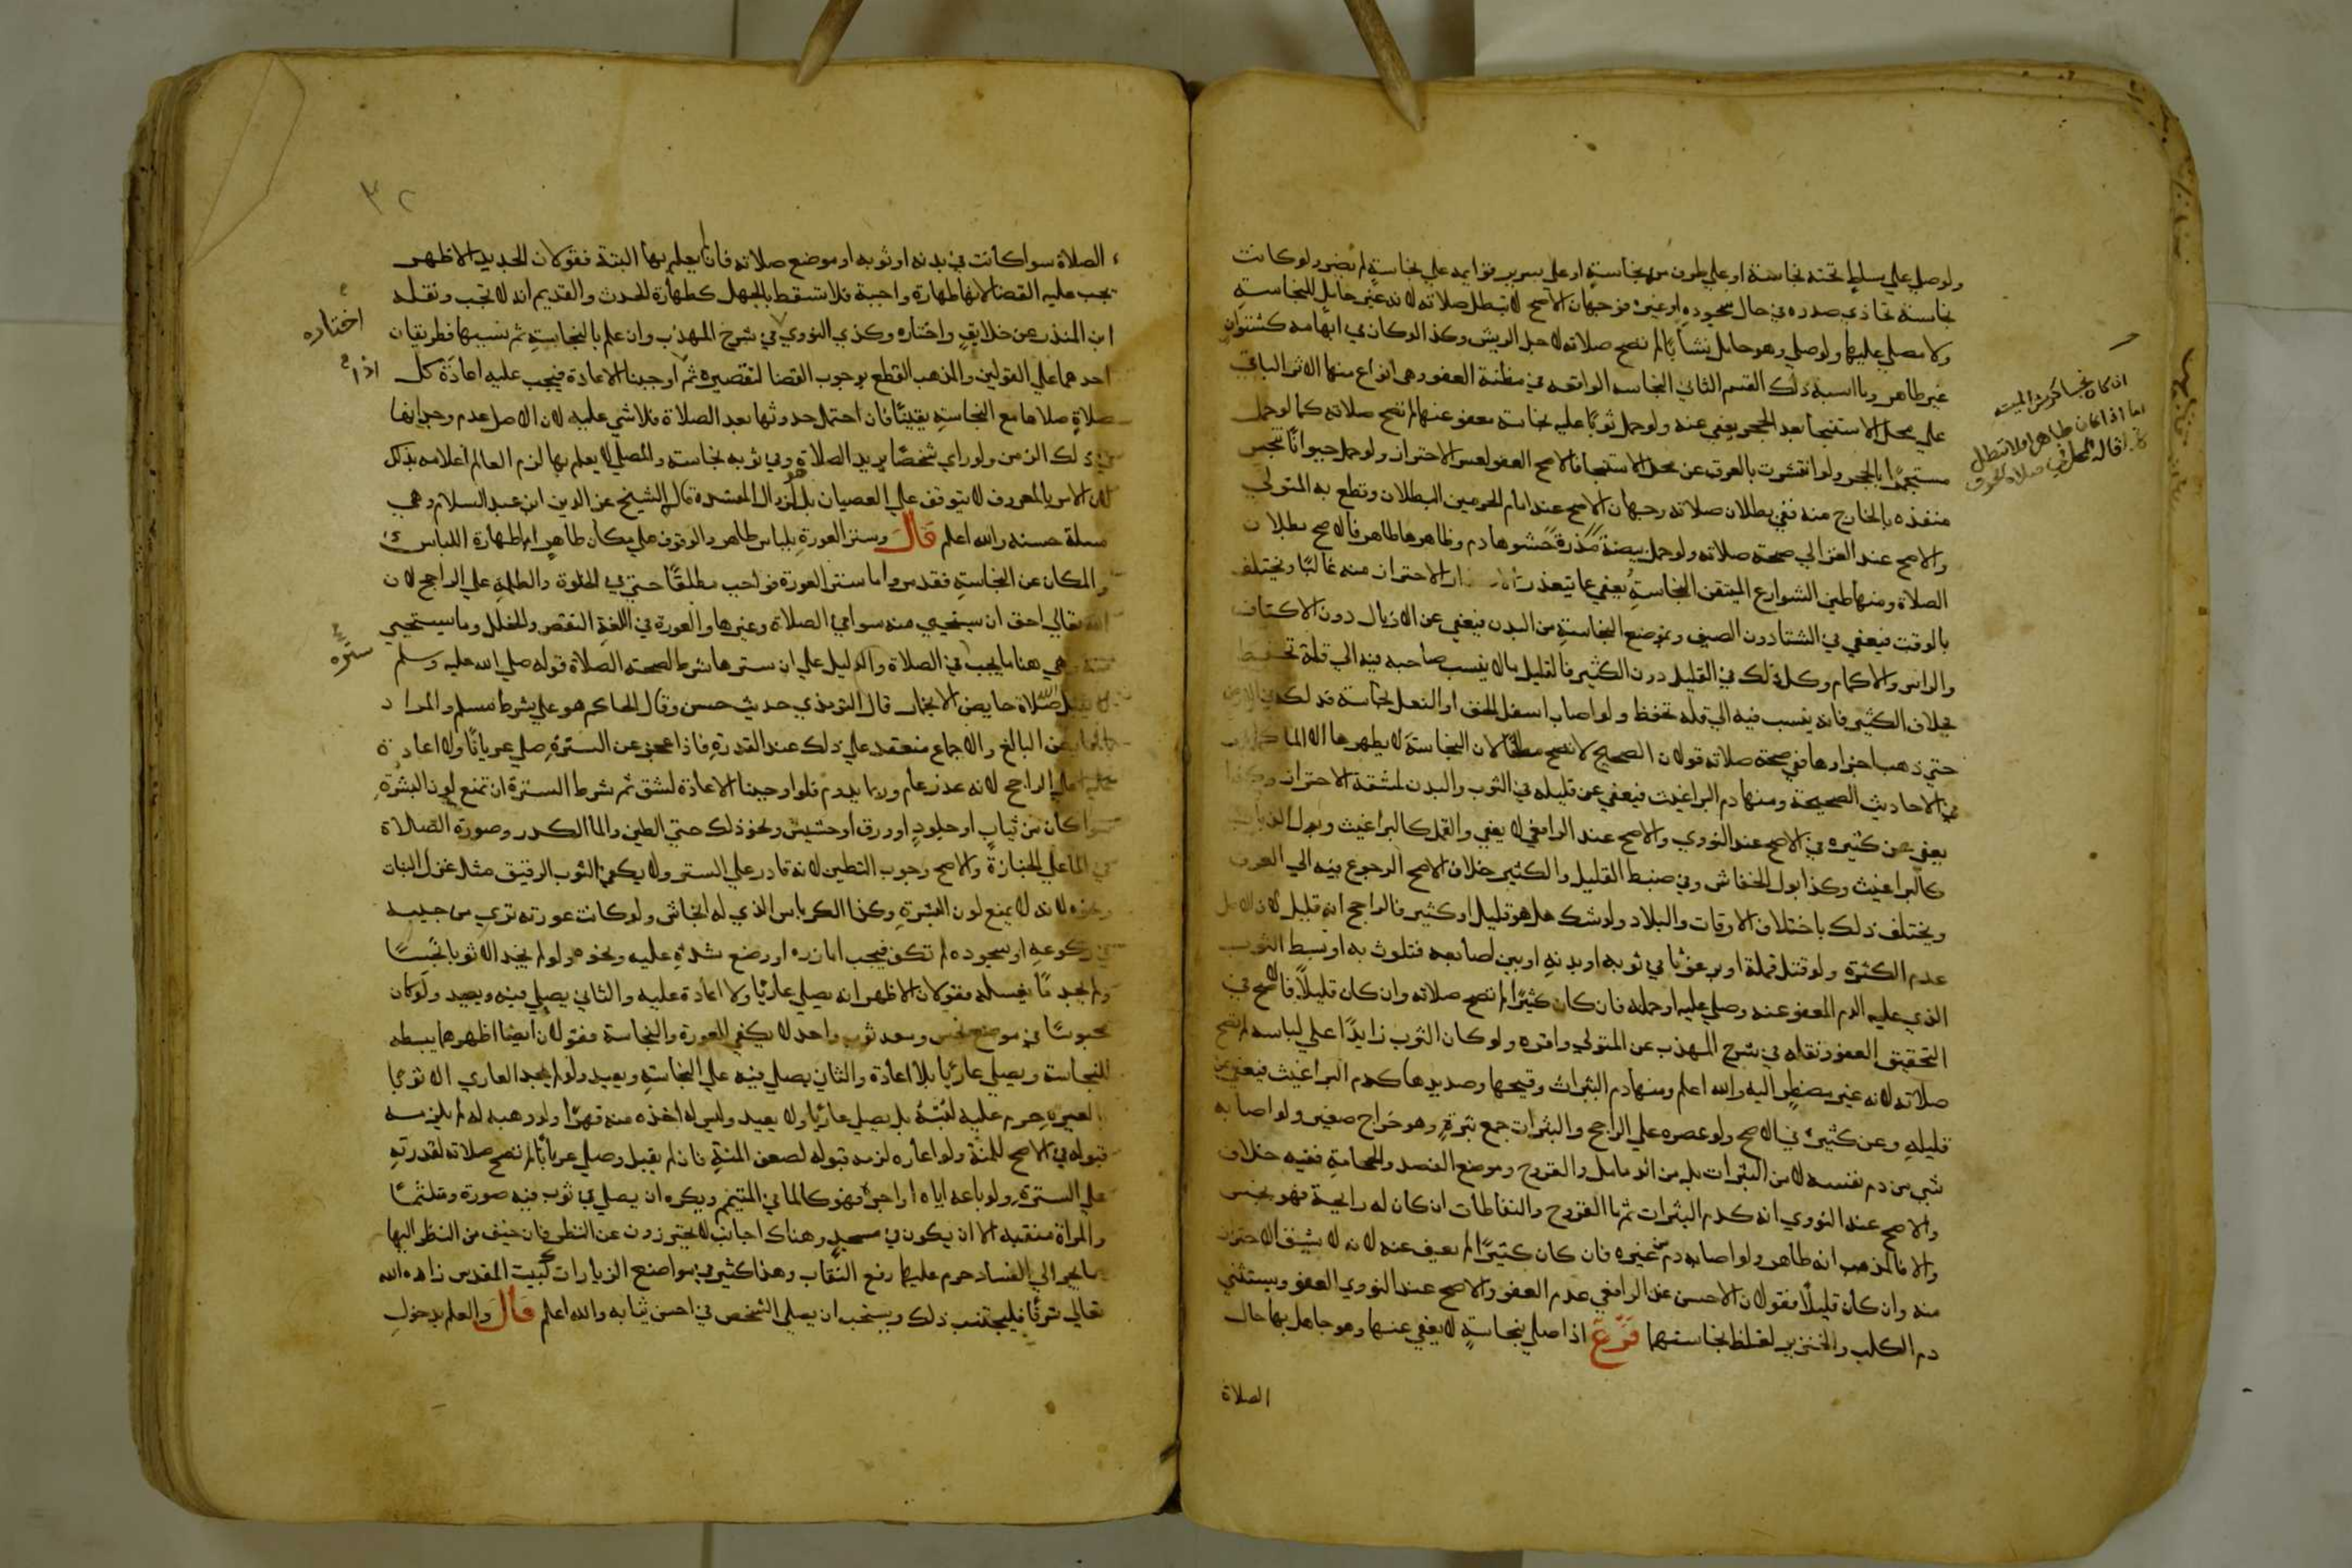 ولو صلي علي بساط تحته نجاسة او علي طرف منه نجاسة او علي سرير قوايمه علي نجاسة لم يضر ولو كانت
نجاسة تحاذي صدره في حال سجوده او غيره فوجهان الاصح لا تبطل صلاته لانه غير حامل للنجاسة
ولا مصلي عليها ولو صلي وهو حامل نشابًا لم تصح صلاته لاجل الريش وكذا لو كان في ابهامه كشتوان
غير طاهر وما اشبه ذلك القسم الثاني النجاسه الواقعه في مظنة العفو وهي انواع منها الاثر الباقي
علي محل الاستنجا بعد الحجر يعفي عنه ولو حمل ثوبًا عليه نجاسة معفو عنها لم تصح صلاته كما لو حمل
مستجمرًا بالحجر ولو انتشرت بالعرق عن محل الاستنجا فالاصح العفو لعسر الاحتراز ولو حمل حيوانًا تنجس
منفذه بالخارج منه ففي بطلان صلاته وجهان الاصح عند امام الحرمين البطلان وقطع به المتولي
والاصح عند الغزالي صحة صلاته ولو حمل بيضة مذرة حشوها دم وظاهرها طاهر فالاصح بطلان
الصلاة ومنها طين الشوارع المتيقن النجاسة يعفي عما يتعذر الاحتراز منه غالبًا ويختلف
بالوقت فيعفي في الشتا دون الصيف وبموضع النجاسة من البدن فيعفي عن الاذيال دون الاكتاف
والراس والاكمام وكل ذلك في القليل دون الكثير فالقليل ما لا ينسب صاحبه فيه الي قلة تحفظ
بخلاف الكثير فانه ينسب فيه الي قلة تحفظ ولو اصاب اسفل الخف او النعل نجاسة فدلكه في الارض
حتي ذهب اجزاوها ففي صحة صلاته قولان الصحيح لا تصح مطلقا لان النجاسة لا يطهرها الا الما كما
في الاحاديث الصحيحة ومنها دم البراغيث فيعفي عن قليله في الثوب والبدن لمشقة الاحتراز وكذا
يعفي عن كثيره في الاصح عند النووي والاصح عند الرافعي لا يعفي والقمل كالبراغيث وبول الذباب
كالبراغيث وكذا بول الخفاش وفي ضبط القليل والكثير خلاف الاصح الرجوع فيه الي العرف
ويختلف ذلك باختلاف الاوقات والبلاد ولو شك هل هو قليل او كثير فالراجح انه قليل لان الاصل
عدم الكثرة ولو قتل قملة او برغوثا في ثوبه او بدنه او بين اصابعه فتلوث به او بسط الثوب
الذي عليه الدم المعفو عنه وصلي عليه او حمله فان كان كثيرًا لم تصح صلاته وان كان قليلاً فالاصح في
التحقيق العفو ونقله في شرح المهذب عن المتولي واقره ولو كان الثوب زايدًا علي لباسه لم تصح
صلاته لانه غير مضطر اليه والله اعلم ومنها دم البثرات وقيحها وصديدها كدم البراغيث فيعفي عن
قليله وعن كثيره في الاصح ولو عصره علي الراجح والبثرات جمع بثرة وهو خراج صغير ولو اصابه
شي من دم نفسه لا من البثرات بل من الدماميل والقروح وموضع الفصد والحجامة ففيه خلاف
والاصح عند النووي انه كدم البثرات ثم ما القروح والنفاطات ان كان له رايحة فهو نجس
والا فالمذهب انه طاهر ولو اصابه دم من غيره فان كان كثيرًا لم يعف عنه لانه لا يشق الاحتراز
منه وان كان قليلًا فقولان الاحسن عند الرافعي عدم العفو والاصح عند النووي العفو ويستثني
دم الكلب والخنزير لغلظ نجاستهما فرع اذا صلي بنجاسة لا يعفي عنها وهو جاهل بها حال
الصلاة
ان كان نجسا كريش الميت
اما اذا كان طاهرا فلا تبطل
قاله المحلي في صلاة الخوف
٣٢
الصلاة سوا كانت في بدنه او ثوبه او موضع صلاته فان لم يعلم بها البتة فقولان الجديد الاظهر
تجب عليه القضا لانها طهارة واجبة فلا تسقط بالجهل كطهارة الحدث والقديم انه لا تجب ونقله
ابن المنذر عن خلايق واختاره وكذي النووي في شرح المهذب وان علم بالنجاسة ثم نسيها فطريقان
احدهما علي القولين والمذهب القطع بوجوب القضا لتقصيره ثم اوجبنا الاعادة فيجب عليه اعادة كل
صلاة صلاها مع النجاسة يقينًا فان احتمل حدوثها بعد الصلاة فلا شي عليه لان الاصل عدم وجدانها
في ذلك الزمن ولو راي شخصًا يريد الصلاة وفي ثوبه نجاسة والمصلي لا يعلم بها لزم العالم اعلامه بذلك
لان الامر بالمعروف لا يتوقف علي العصيان بل لزوال المفسدة قال الشيخ عز الدين ابن عبد السلام وهي
مسلة حسنة والله اعلم قال وستر العورة بلباس طاهر والوقوف علي مكان طاهر اما طهارة اللباس
والمكان عن النجاسة فقد مر واما ستر العورة فواجب مطلقًا حتي في الخلوة والظلمة علي الراجح لان
الله تعالي احق ان يستحيي منه سوا في الصلاة وغيرها والعورة في اللغة النقص والخلل وما يستحيي
منه وهي هنا ما يجب في الصلاة والدليل علي ان سترها شرط لصحة الصلاة قوله صلي الله عليه وسلم
لا يقبل الله صلاة حايض الا بخمار قال الترمذي حديث حسن وقال الحاكم هو علي شرط مسلم والمراد
بالحايض البالغ والاجماع منعقد علي ذلك عند القدرة فاذا عجز عن السترة صلي عريانًا ولا اعادة
عليه علي الراجح لانه عذر عام وربما يدوم فلو اوجبنا الاعادة لشق ثم شرط السترة ان تمنع لون البشرة
سوا كان من ثياب او جلود او ورق او حشيش ونحو ذلك حتي الطين والما الكدر وصورة الصلاة
في الما علي الجنازة والاصح وجوب التطين لانه قادر علي الستر ولا يكفي الثوب الرقيق مثل غزل البنات
ونحوه لانه لا يمنع لون البشرة وكذا الكرباس الذي له الخاش ولو كانت عورته تري من جيبه
في ركوعه او سجوده لم تكف فيجب امازره او وضع شدة عليه ونحوه ولو لم يجد الا ثوبا نجسًا
ولم يجد مًا يغسله فقولان الاظهر انه يصلي عاريًا ولا اعادة عليه والثاني يصلي فيه ويعيد ولو كان
محبوسًا في موضع نجس ومعه ثوب واحد لا يكفي للعورة والنجاسة فقولان ايضا اظهرهما يبسطه
للنجاسة ويصلي عاريًا بلا اعادة والثاني يصلي فيه علي النجاسة ويعيد ولو لم يجد العاري الا ثوبا
لغيره حرم عليه لبسه بل يصلي عاريًا ولا يعيد وليس له اخذه منه قهرًا ولو وهبه له لم يلزمه
قبوله في الاصح للمنة ولو اعاره لزمه قبوله لضعف المنة فان لم يقبل وصلي عريانًا لم تصح صلاته لقدرته
علي السترة ولو باعه اياه او اجره فهو كالما في التيمم ويكره ان يصلي في ثوب فيه صورة ومتلثمًا
والمراة متنقبة الا ان يكون في مسجد وهناك اجانب لا يحترزون عن النظر فان خيف من النظر اليها
ما يجر الي الفساد حرم عليها رفع النقاب وهذا كثير في مواضع الزيارات كبيت المقدس زاده الله
تعالي شرفًا فليجتنب ذلك ويستحب ان يصلي الشخص في احسن ثيابه والله اعلم قال والعلم بدخول
اختاره
اذا
ستره